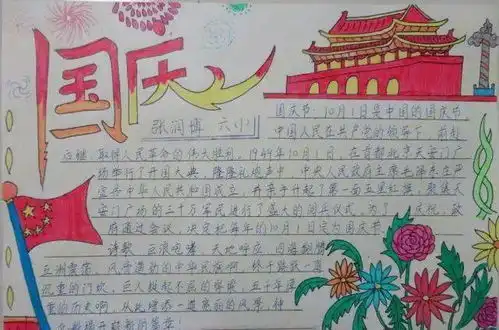 国庆
张润博 六(小)
国庆节 10月1日是中国的国庆节
中国人民在共产党的领导下,前赴
后继,取得人民革命的伟大胜利,1949年10月1日,在首都北京天安门广
场举行了开国大典,隆隆礼炮声中,中央人民政府主席毛泽东庄严
宣告中华人民共和国成立,并亲手升起了第一面五星红旗,聚集天
安门广场的三十万军民进行了盛大的阅兵仪式,为了 庆祝,政
府通过会议,决定把每年的10月1日定为国庆节
诗歌 巨浪咆哮 天地呼应 四海翻腾
五洲震荡,风雪遮断的中华民族啊,终于踏破一道
沉重的门坎,巨人挺起不屈的脊梁,五十年
重的历史啊,从此增添一道亮丽的风景,神